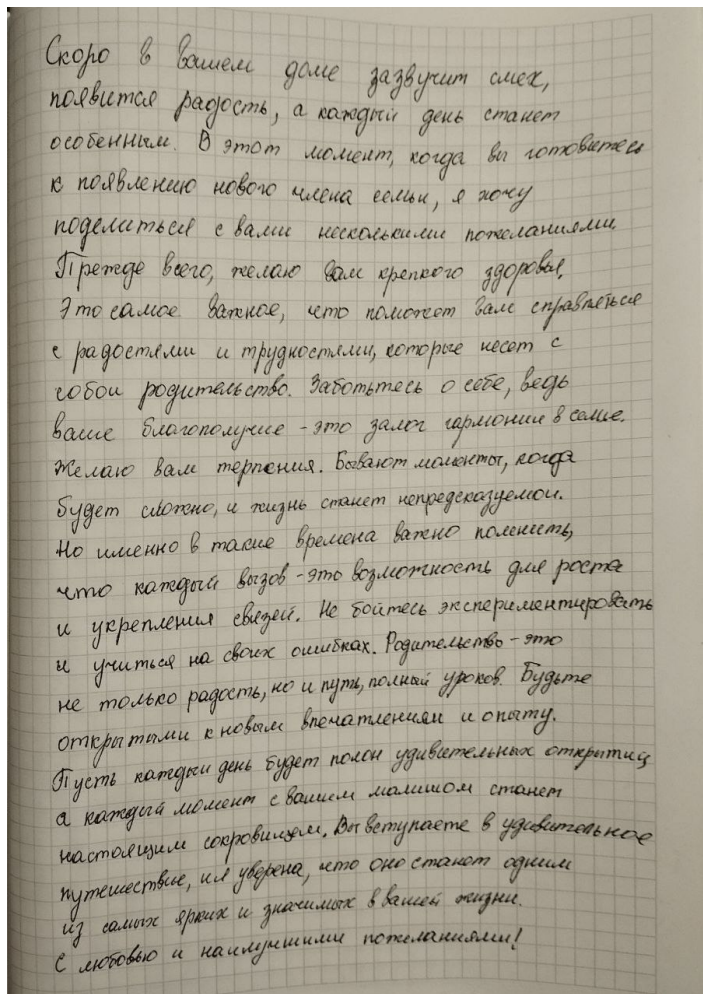 Скоро в вашем доме зазвучит смех,
появится радость, а каждый день станет
особенным. В этот момент, когда вы готовитесь
к появлению нового члена семьи, я хочу
поделиться с вами несколькими пожеланиями.
Прежде всего, желаю вам крепкого здоровья.
Это самое важное, что поможет вам справляться
с радостями и трудностями, которые несет с
собой родительство. Заботьтесь о себе, ведь
ваше благополучие - это залог гармонии в семье.
Желаю вам терпения. Бывают моменты, когда
будет сложно, и жизнь станет непредсказуемой.
Но именно в такие времена важно помнить,
что каждый вызов - это возможность для роста
и укрепления связей. Не бойтесь экспериментировать
и учиться на своих ошибках. Родительство - это
не только радость, но и путь, полный уроков. Будьте
открытыми к новым впечатлениям и опыту.
Пусть каждый день будет полон удивительных открытий,
а каждый момент с вашим малышом станет
настоящим сокровищем. Вы вступаете в удивительное
путешествие, и я уверена, что оно станет одним
из самых ярких и значимых в вашей жизни.
С любовью и наилучшими пожеланиями!